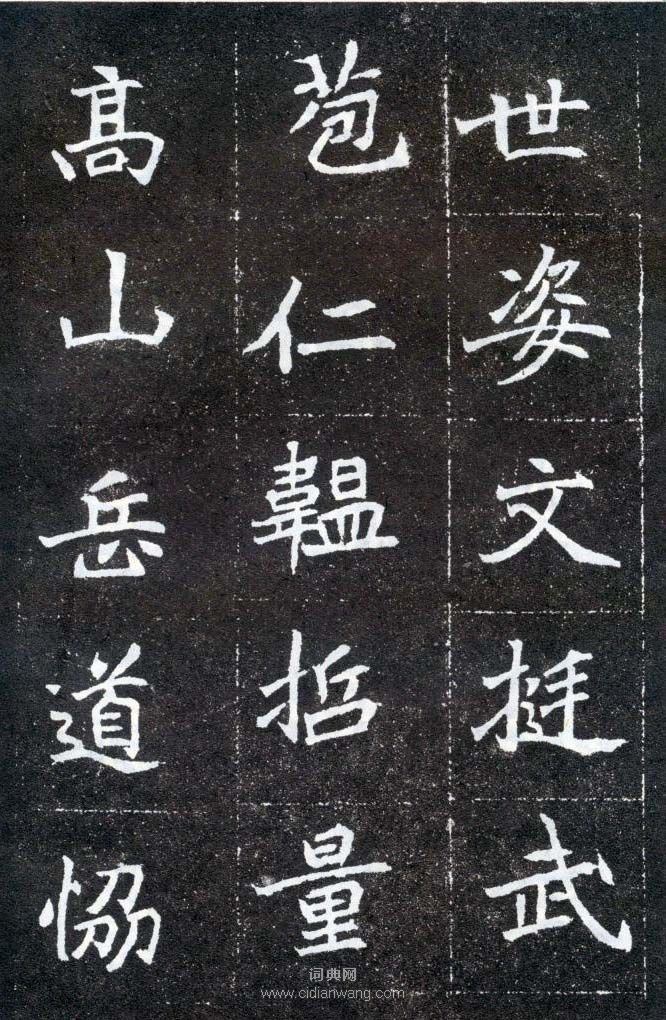 世姿文挺武
苞仁韞哲量
髙山岳道恊
词典网
www.cidianwang.com